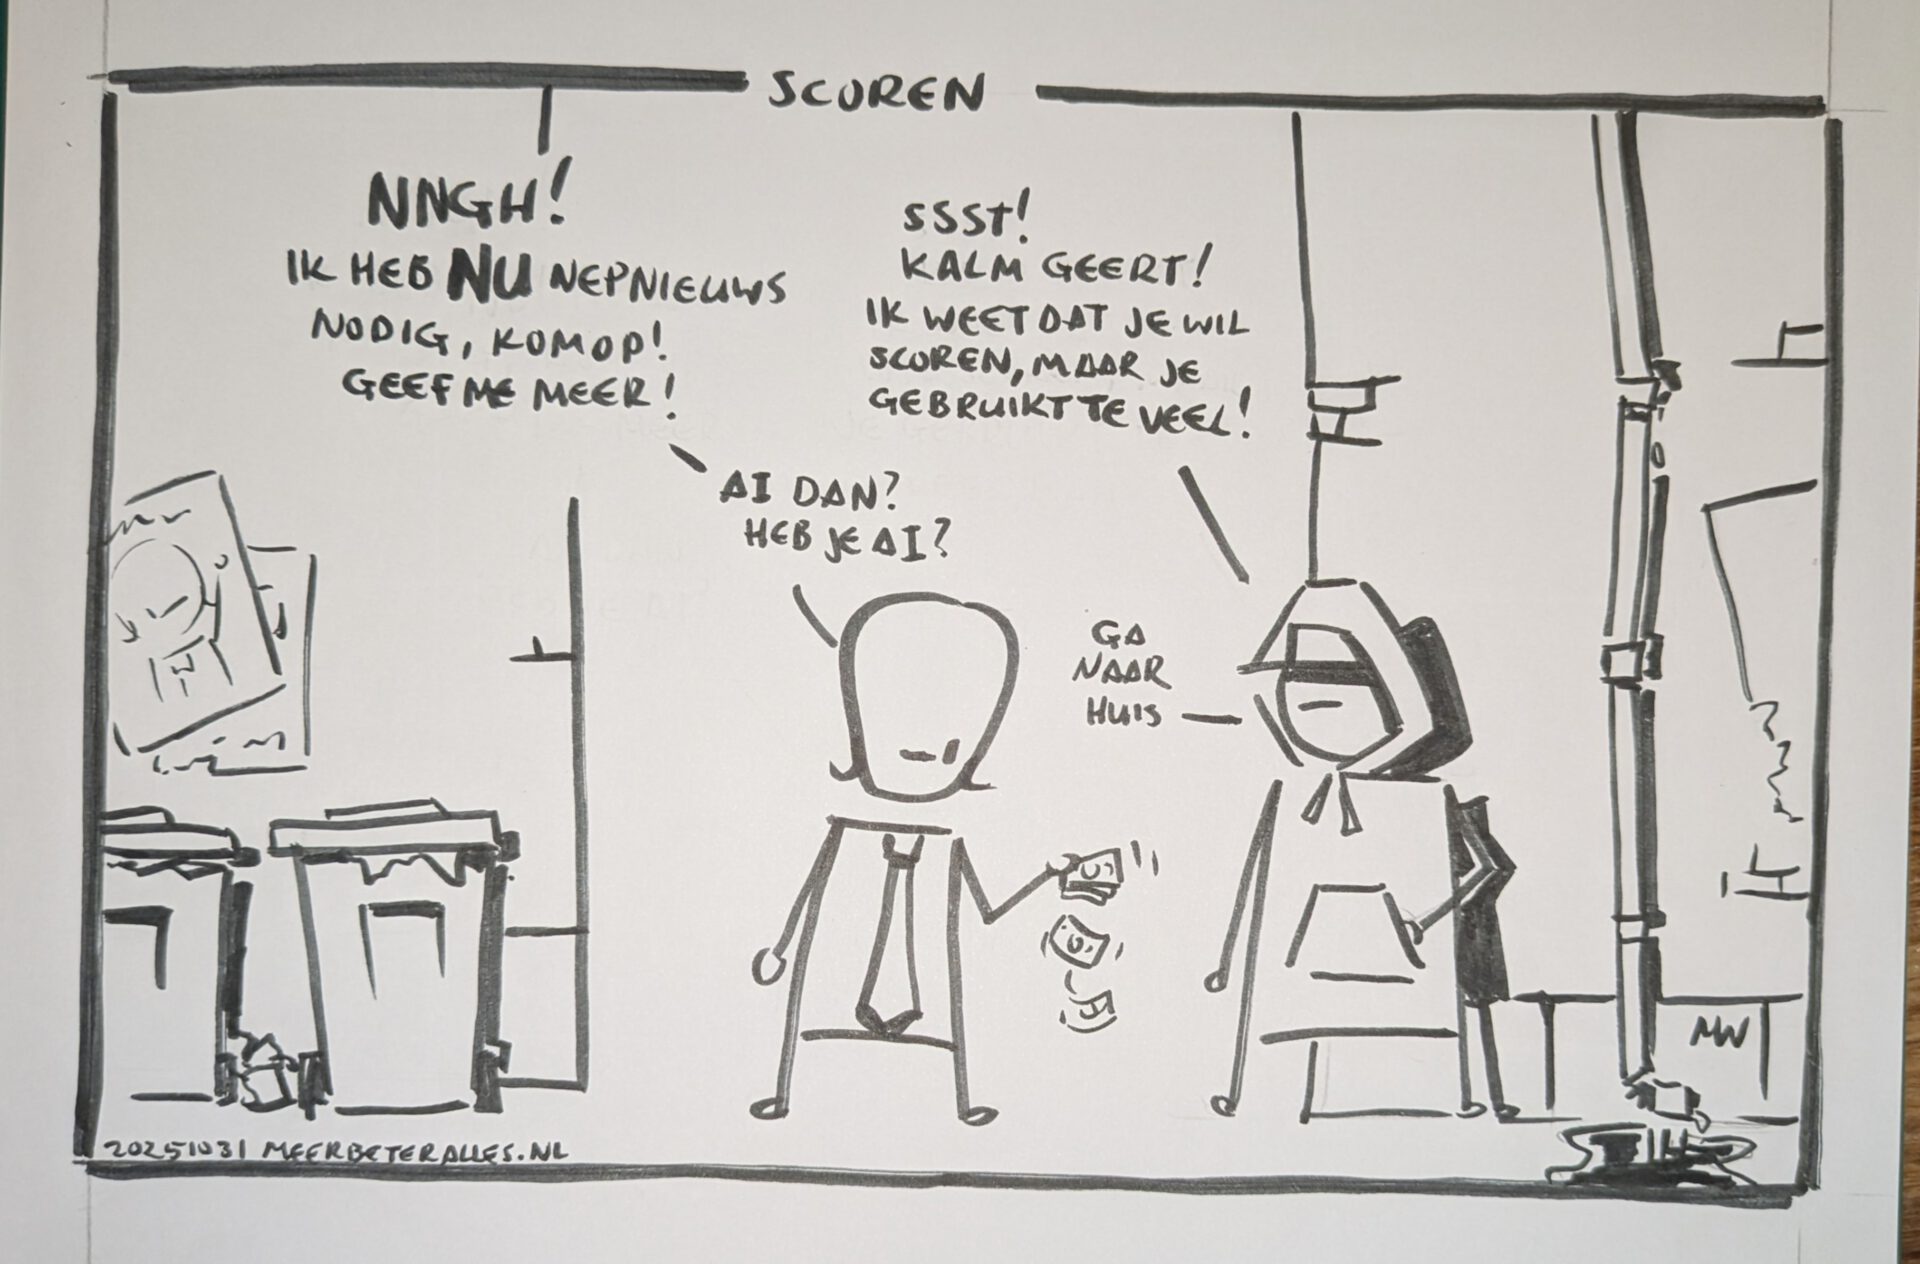 SCOREN
NNGH!
IK HEB NU NEPNIEUWS
NODIG, KOM OP!
GEEF ME MEER!
AI DAN?
HEB JE AI?
SSST!
KALM GEERT!
IK WEET DAT JE WIL
SCOREN, MAAR JE
GEBRUIKT TE VEEL!
GA
NAAR
HUIS
MW
20251031 MEERBETERALLES.NL